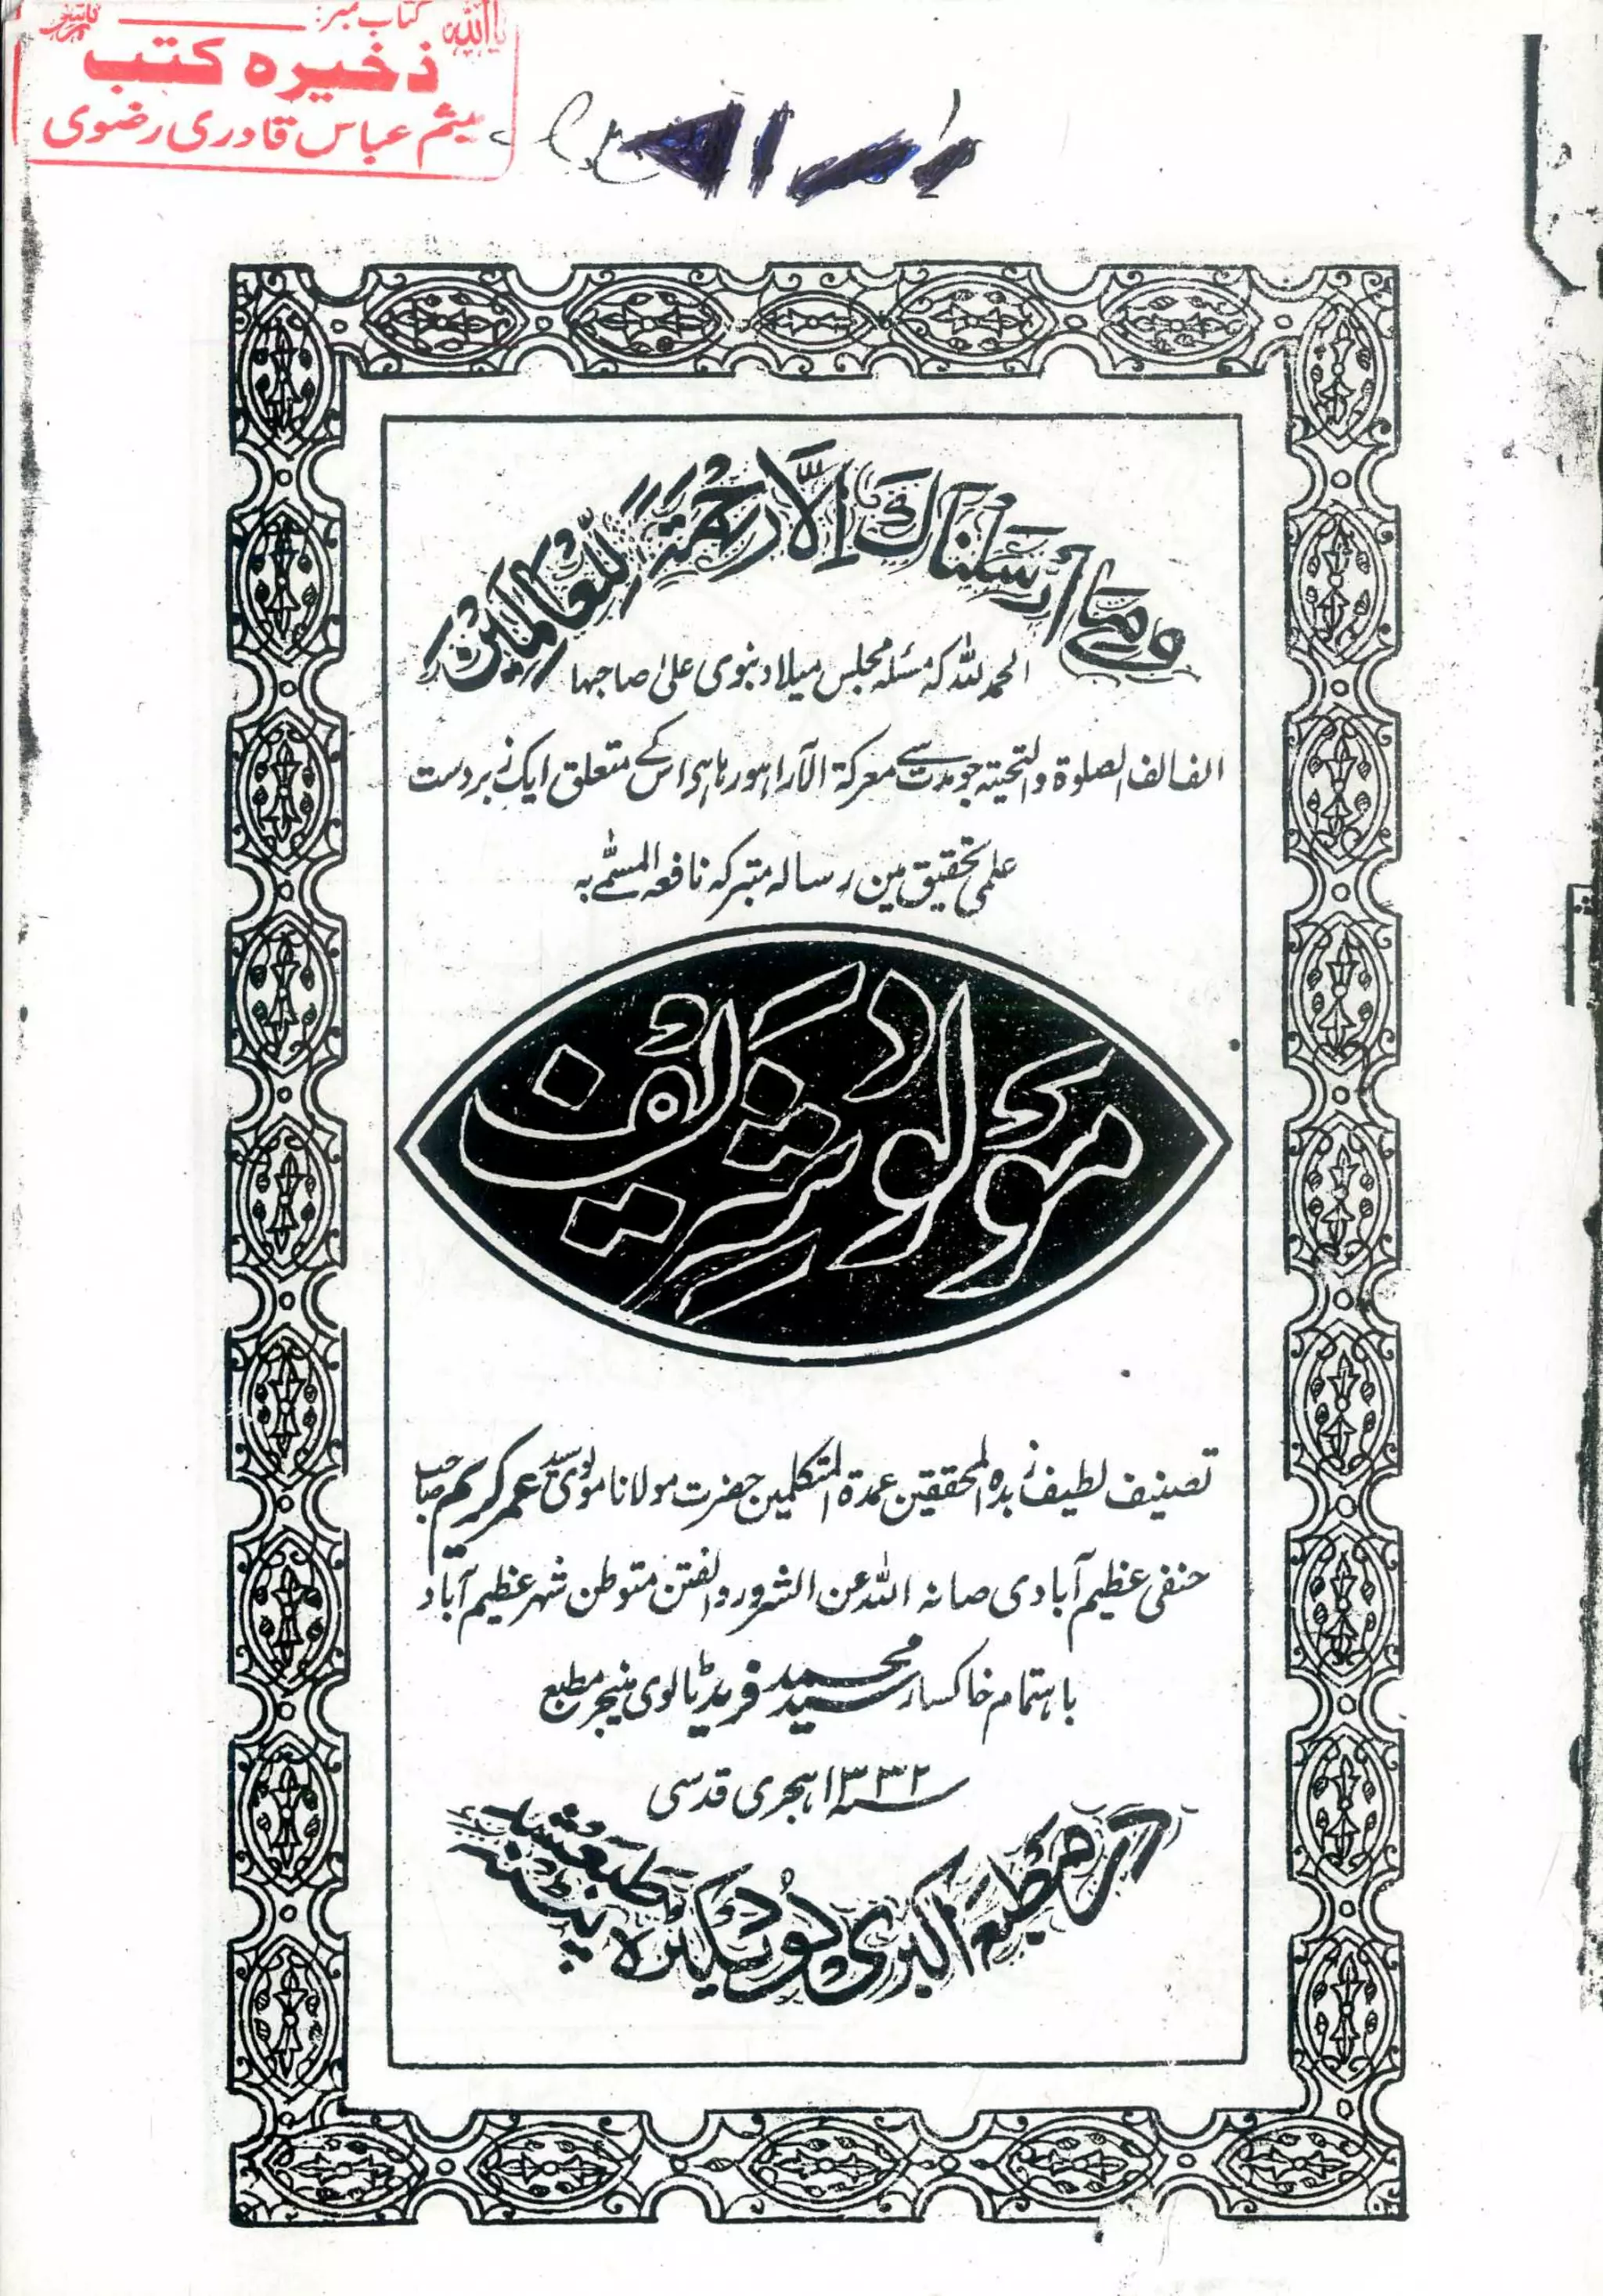 یااللہ کتاب نمبر:
ذخیرہ کتب
میثم عباس قادری رضوی
وَمَا اَرْسَلْنَاكَ اِلَّا رَحْمَةً لِّلْعَالَمِيْنَ
الحمد للہ کہ مسئلہ مجلس میلاد نبوی علیٰ صاحبہا
الف الف الصلوۃ والتحیۃ جو مدت سے معرکۃ الآرا ہو رہا ہی اس کے متعلق ایک زبردست
علمی تحقیق مین رسالہ متبرکہ نافعہ المسمٰے بہ
مَولُود شَرِیف
تصنیف لطیف زبدہ المحققین عمدۃ المتکلمین حضرت مولانا مولوی سید عمر کریم صاحب
حنفی عظیم آبادی صانہ اللہ عن الشرور والفتن متوطن شہر عظیم آباد
باہتمام خاکسار سید محمد فرید یالوی منیجر مطبع
سنہ ۱۳۳۲ ہجری قدسی
در مطبع اکبری لودیکٹرہ پٹنہ طبع شد